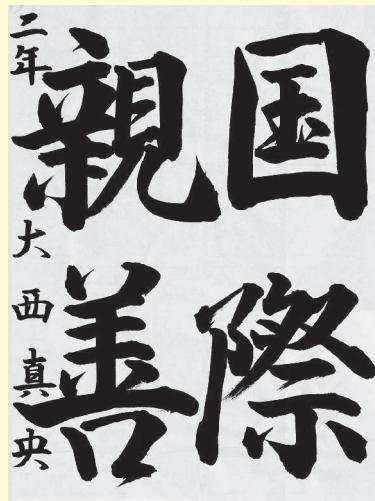 国際
親善
二年 大西真央